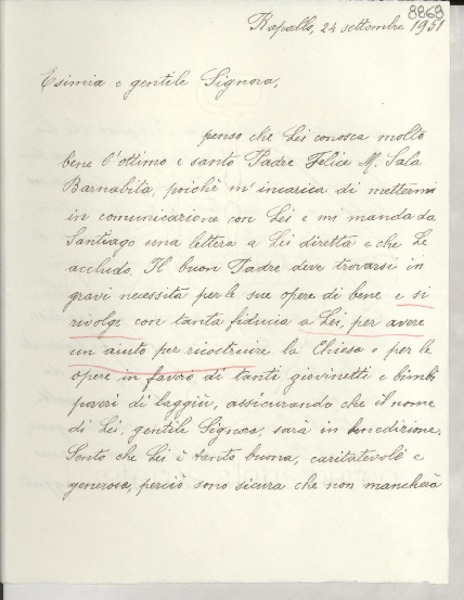 8868
Rapallo, 24 settembre 1951
Esimia e gentile Signora,
penso che Lei conosca molto
bene l'ottimo e santo Padre Felice M. Sala
Barnabita, poichè m'incarica di mettermi
in comunicazione con Lei e mi manda da
Santiago una lettera a Lei diretta e che Le
accludo. Il buon Padre deve trovarsi in
gravi necessità per le sue opere di bene e si
rivolge con tanta fiducia a Lei, per avere
un aiuto per ricostruire la Chiesa e per le
opere in favore di tanti giovinetti e bimbi
poveri di laggiù, assicurando che il nome
di Lei, gentile Signora, sarà in benedizione.
Sento che Lei è tanto buona, caritatevole e
generosa, perciò sono sicura che non mancherà